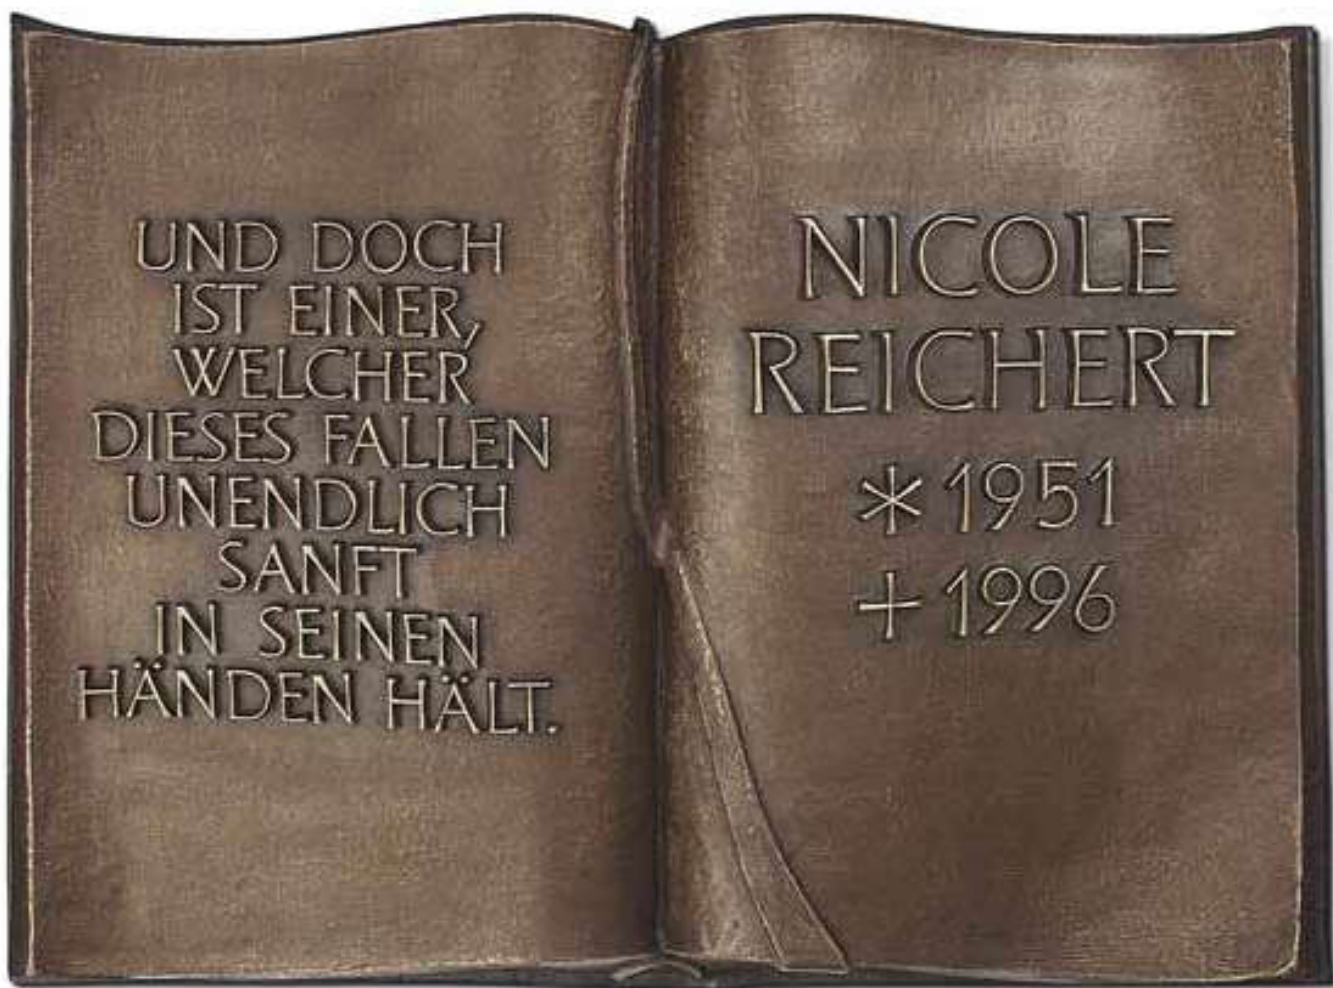 UND DOCH
IST EINER,
WELCHER
DIESES FALLEN
UNENDLICH
SANFT
IN SEINEN
HÄNDEN HÄLT.
NICOLE
REICHERT
* 1951
+ 1996